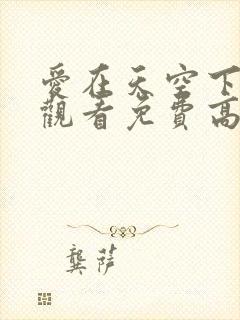 愛在天空下
觀看免費高
龔萨